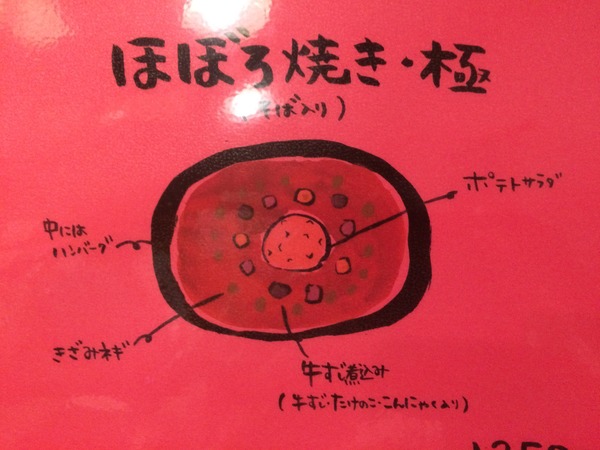 ほぼろ焼き・極
(そば入り)
ポテトサラダ
中には
ハンバーグ
きざみネギ
牛すじ煮込み
(牛すじ・たけのこ・こんにゃく入り)